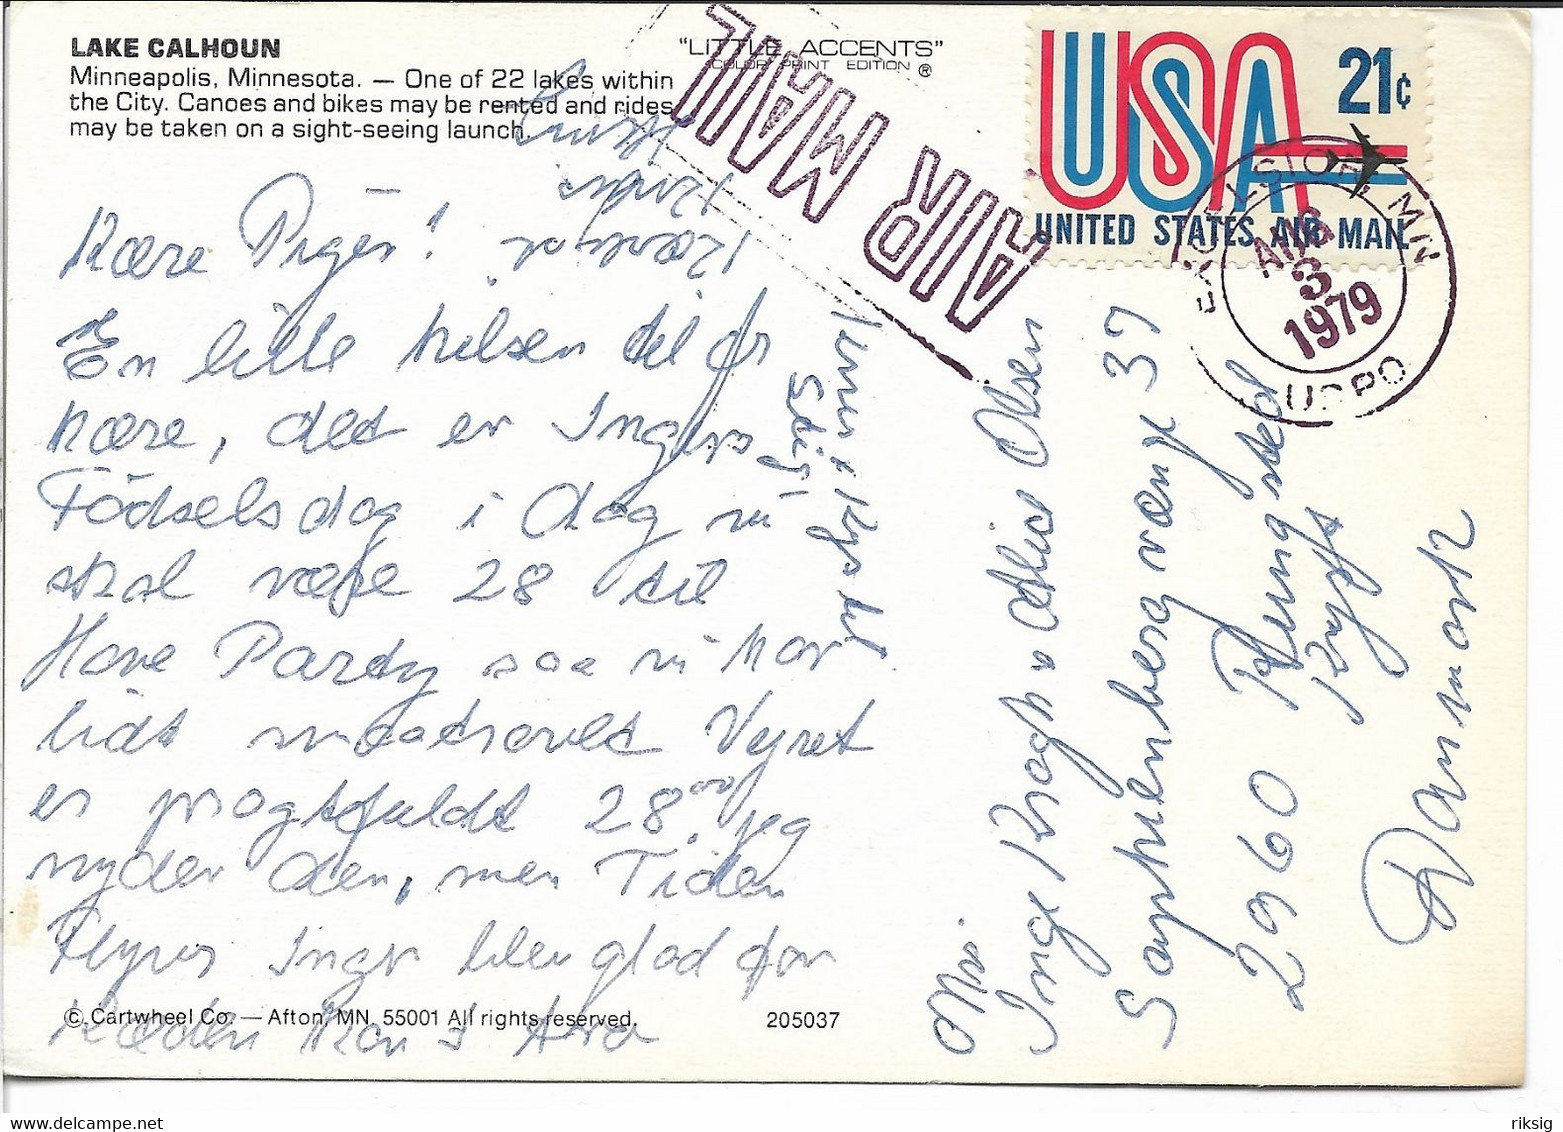 LAKE CALHOUN
Minneapolis, Minnesota. — One of 22 lakes within
the City. Canoes and bikes may be rented and rides
may be taken on a sight-seeing launch.
"LITTLE ACCENTS"
COLOR PRINT EDITION ®
AIR MAIL
USA 21¢
UNITED STATES AIR MAIL
EXCELSIOR, MN
AUG
3
1979
USPO
Kære Piger!
En lille hilsen til
kære, det er Ingers
Födselsdag i dag vi
skal være 28 til
Have Pardy saa vi har
lidt
Vejret
er pragtfuldt 28°° jeg
nyder den, men Tiden
Flyver Inga blev glad for
Kæden Kan i
Kærligst
Inge Krogh
Olsen
37
2960 Rungsted
Kyst
Danmark
© Cartwheel Co. — Afton, MN. 55001 All rights reserved.
205037
riksig